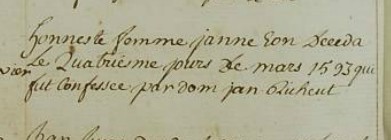 honneste femme janne Eon deceda
le quatriesme jours de mars 1593 qui
fut confessee par dom jan